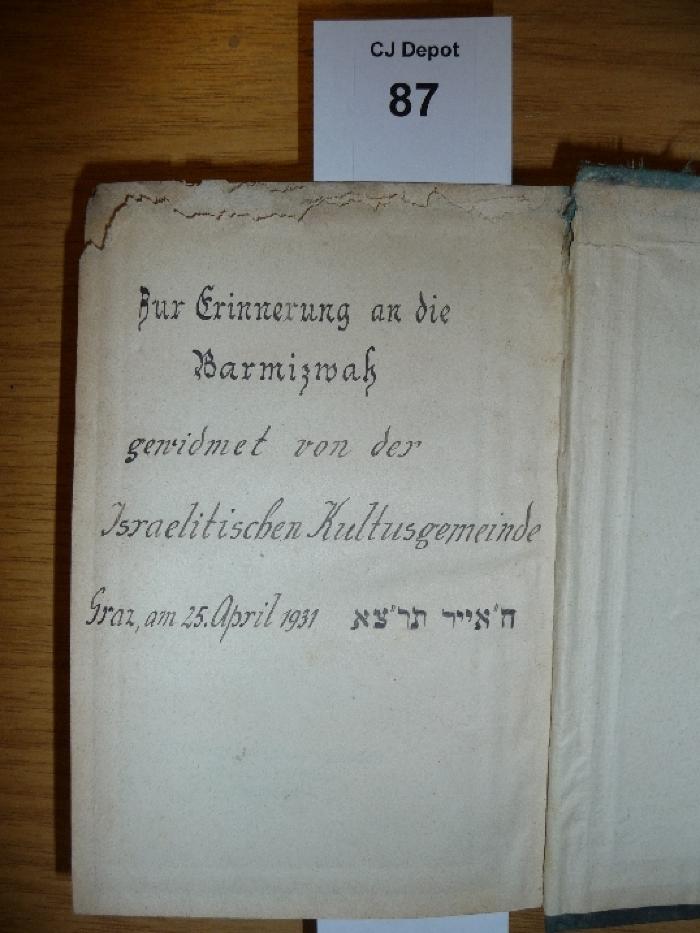 CJ Depot
87
Zur Erinnerung an die
Barmizwah
gewidmet von der
Israelitischen Kultusgemeinde
Graz, am 25. April 1931 ח"אייר תר"צא